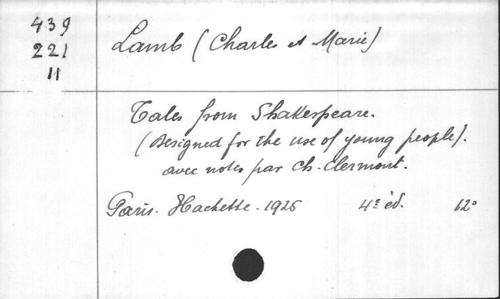 439
221
11
Lamb (Charles et Marie)
Tales from Shakespeare.
(Designed for the use of young people).
avec notes par Ch. Clermont.
Paris. Hachette. 1926 4e éd. 12°